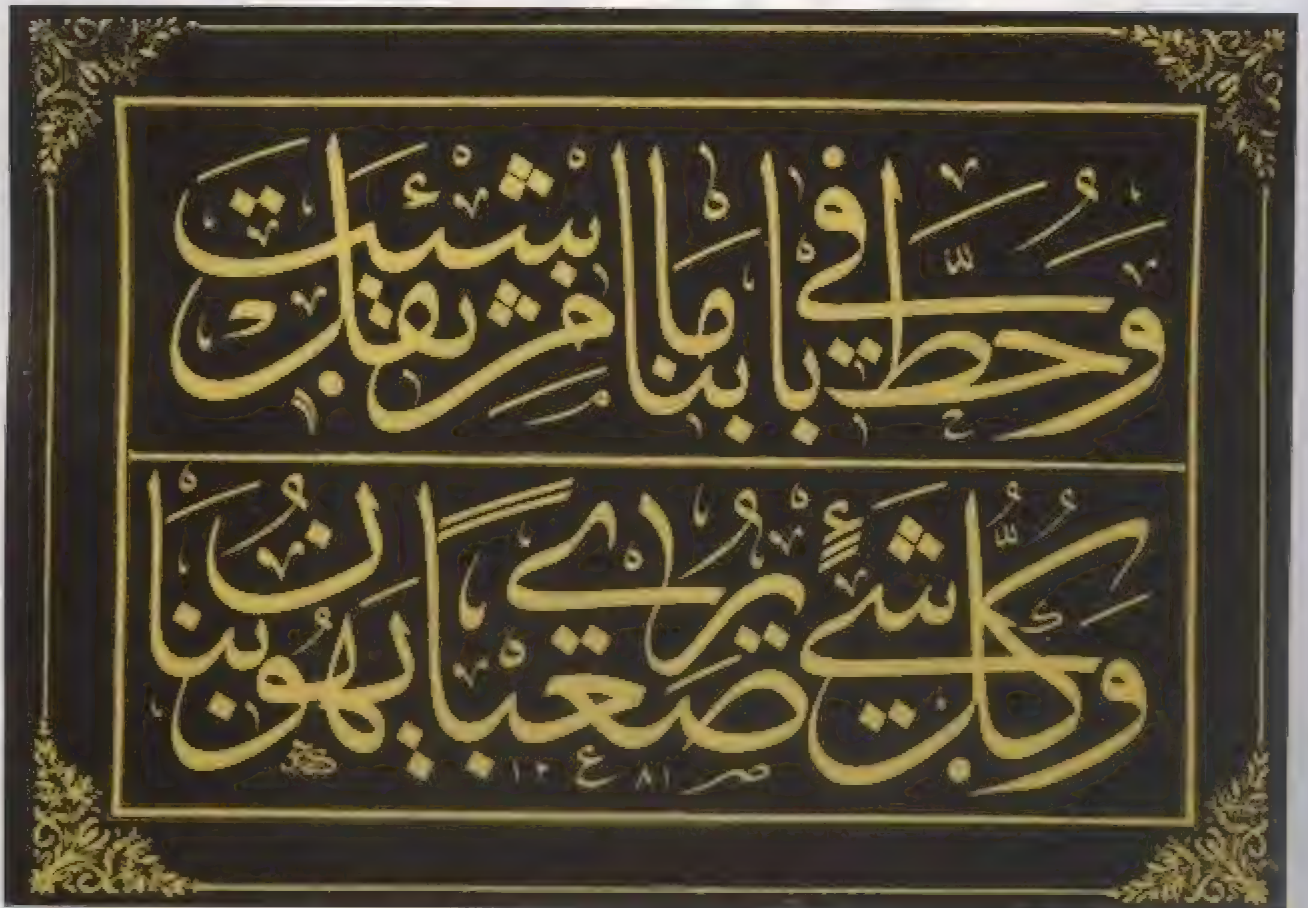 وَحُطَّ فِي بَابِنَا مَا شِئْتَ مِنْ ثِقَلٍ
وَكُلُّ شَيْءٍ يُرَى صَعْبًا يَهُونُ بِنَا